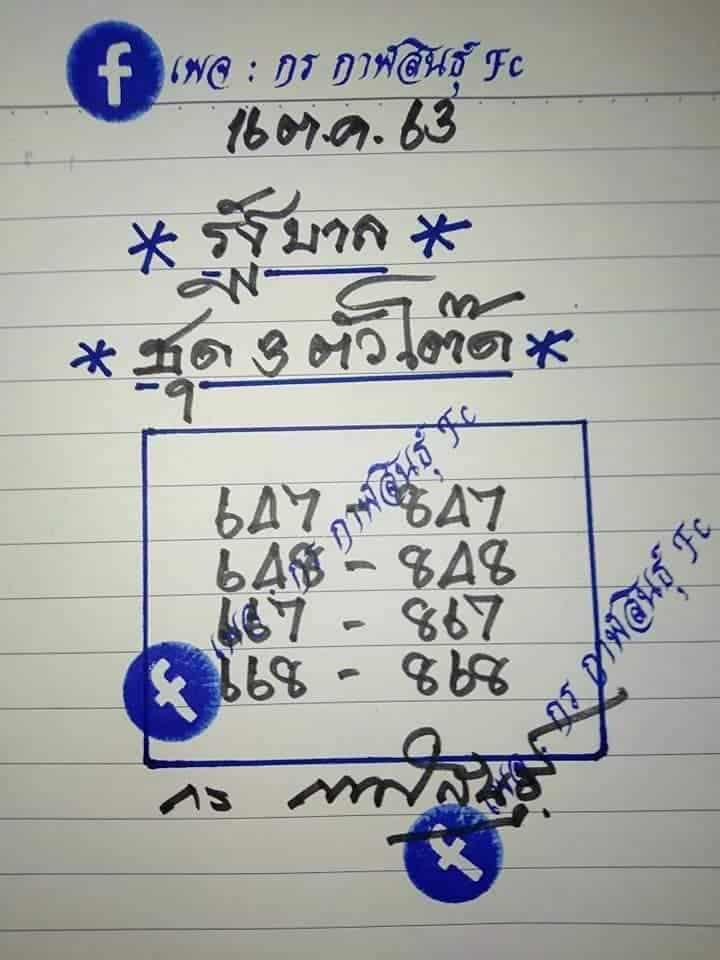 f เพจ : กร กาฬสินธุ์ Fc
16 ต.ค. 63
* รัฐบาล *
* ชุด 3 ตัวโต๊ด *
647 - 847
648 - 848
667 - 867
668 - 868
เพจ : กร กาฬสินธุ์ Fc
f
กร กาฬสินธุ์
เพจ : กร กาฬสินธุ์ Fc
f